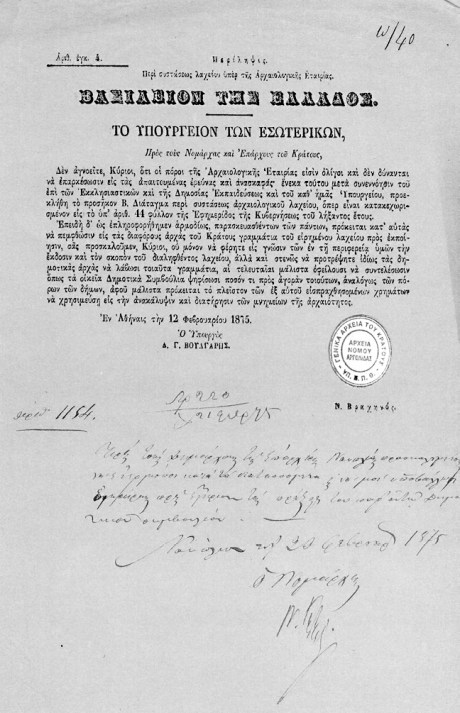 ω/40
Ἀριθ. ἐγκ. 4.
Περίληψις.
Περὶ συστάσεως λαχείου ὑπὲρ τῆς Ἀρχαιολογικῆς Ἑταιρίας.
ΒΑΣΙΛΕΙΟΝ ΤΗΣ ΕΛΛΑΔΟΣ.
ΤΟ ΥΠΟΥΡΓΕΙΟΝ ΤΩΝ ΕΣΩΤΕΡΙΚΩΝ,
Πρὸς τοὺς Νομάρχας καὶ Ἐπάρχους τοῦ Κράτους,
Δὲν ἀγνοεῖτε, Κύριοι, ὅτι οἱ πόροι τῆς Ἀρχαιολογικῆς Ἑταιρίας εἰσὶν ὀλίγοι καὶ δὲν δύνανται
νὰ ἐπαρκέσωσιν εἰς τὰς ἀπαιτουμένας ἐρεύνας καὶ ἀνασκαφάς· ἕνεκα τούτου μετὰ συνεννόησιν τοῦ
ἐπὶ τῶν Ἐκκλησιαστικῶν καὶ τῆς Δημοσίας Ἐκπαιδεύσεως καὶ τοῦ καθ' ἡμᾶς Ὑπουργείου, προε-
κλήθη τὸ προσῆκον Β. Διάταγμα περὶ συστάσεως ἀρχαιολογικοῦ λαχείου, ὅπερ εἶναι κατακεχωρι-
σμένον εἰς τὸ ὑπ' ἀριθ. 44 φύλλον τῆς Ἐφημερίδος τῆς Κυβερνήσεως τοῦ λήξαντος ἔτους.
Ἐπειδὴ δ' ὡς ἐπληροφορήθημεν ἁρμοδίως, παρασκευασθέντων τῶν πάντων, πρόκειται κατ' αὐτὰς
νὰ πεμφθῶσιν εἰς τὰς διαφόρους ἀρχὰς τοῦ Κράτους γραμμάτια τοῦ εἰρημένου λαχείου πρὸς ἐκποίη-
σιν, σᾶς προσκαλοῦμεν, Κύριοι, οὐ μόνον νὰ φέρητε εἰς γνῶσιν τῶν ἐν τῇ περιφερείᾳ ὑμῶν τὴν
ἔκδοσιν καὶ τὸν σκοπὸν τοῦ διαληφθέντος λαχείου, ἀλλὰ καὶ στενῶς νὰ προτρέψητε ἰδίως τὰς δη-
μοτικὰς ἀρχὰς νὰ λάβωσι τοιαῦτα γραμμάτια, αἱ τελευταῖαι μάλιστα ὀφείλουσι νὰ συντελέσωσιν
ὅπως τὰ οἰκεῖα Δημοτικὰ Συμβούλια ψηφίσωσι ποσόν τι πρὸς ἀγορὰν τοιούτων, ἀναλόγως τῶν πό-
ρων τῶν δήμων, ἀφοῦ μάλιστα πρόκειται τὸ πλεῖστον τῶν ἐξ αὐτοῦ εἰσπραχθησομένων χρημάτων
νὰ χρησιμεύσῃ εἰς τὴν ἀνακάλυψιν καὶ διατήρησιν τῶν μνημείων τῆς ἀρχαιότητος.
Ἐν Ἀθήναις τὴν 12 Φεβρουαρίου 1875.
Ὁ Ὑπουργὸς
Δ. Γ. ΒΟΥΛΓΑΡΗΣ.
ΓΕΝΙΚΑ ΑΡΧΕΙΑ ΤΟΥ ΚΡΑΤΟΥΣ
ΑΡΧΕΙΑ
ΝΟΜΟΥ
ΑΡΓΟΛΙΔΑΣ
ΥΠ. Ε. Π. Θ.
Ν. Βραχηνός.
ἀριθ 1184.
Πρὸς τοὺς Δημάρχους τῆς
Ναύπλιον τῇ 20 1875
Ὁ Νομάρχης